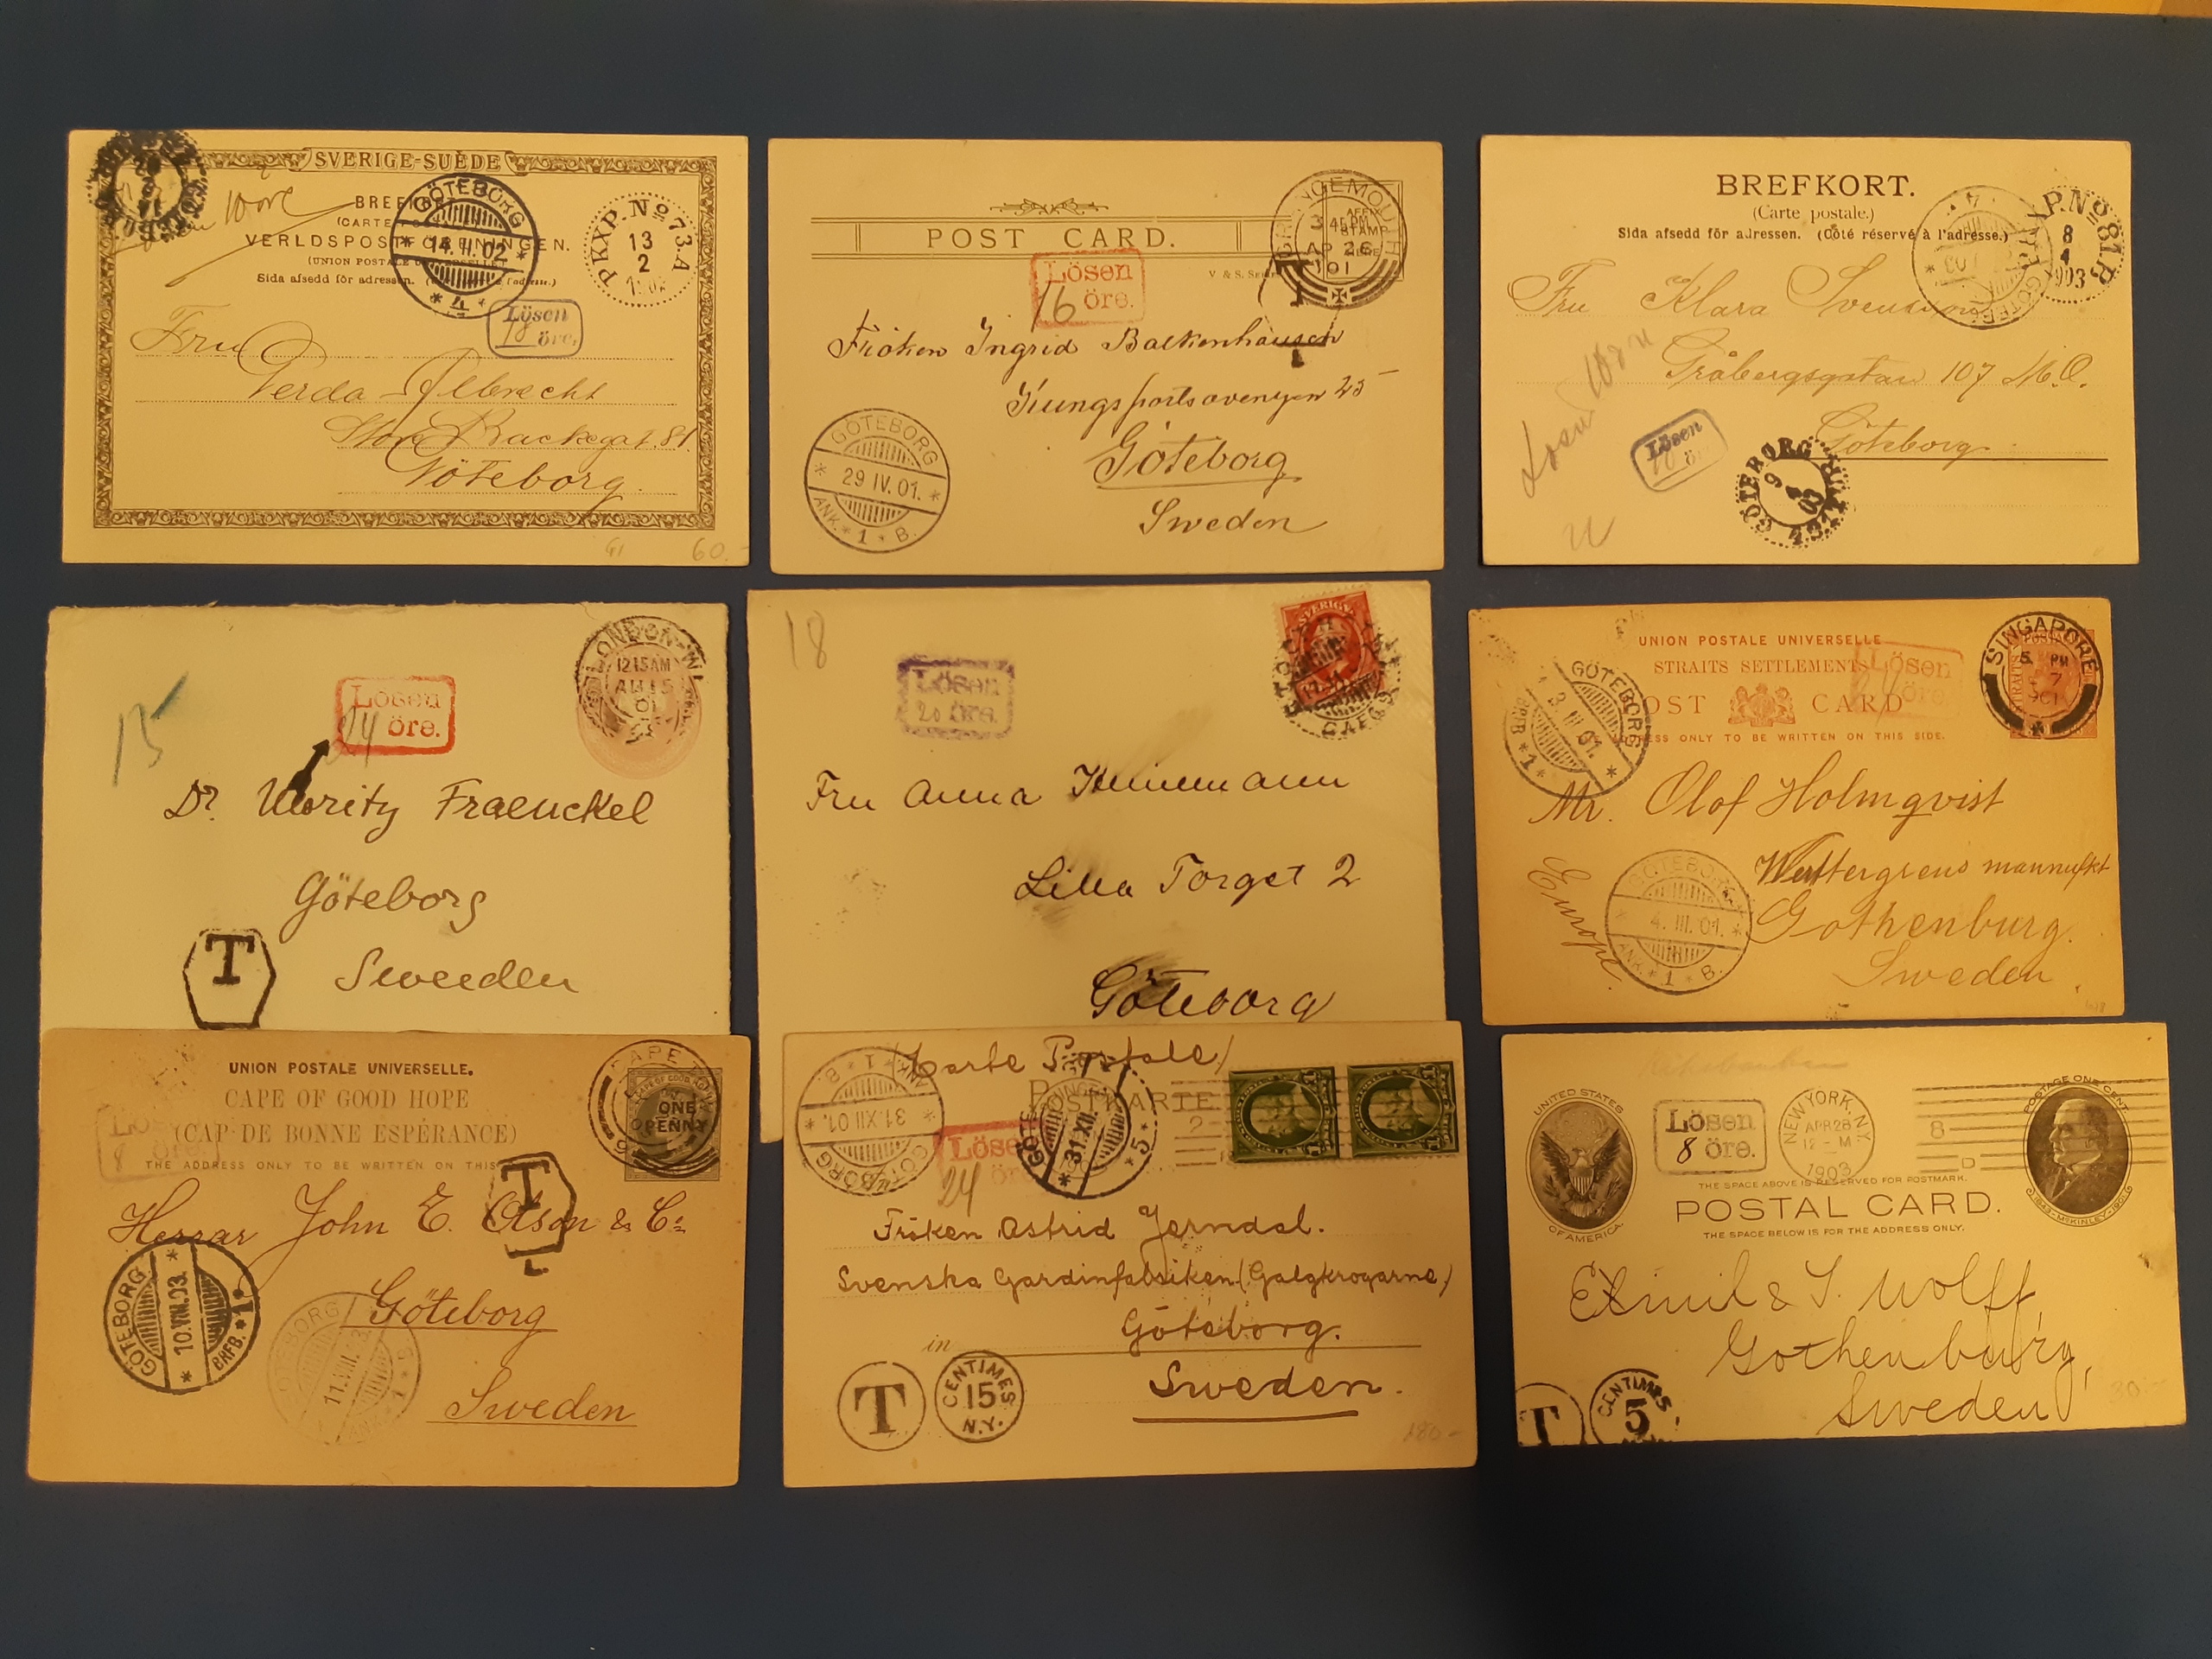 SVERIGE-SUÈDE
10 öre
VERLDSPOSTFÖRENINGEN.
Sida afsedd för adressen.
GÖTEBORG
14. II. 02
4
PKXP. No 73.A
13
2
Lösen
18
öre.
Fru
Gerda Albrecht
Göteborg.
60.-
POST CARD.
GRANGEMOUTH
AFFIX
STAMP
HERE
AP 26
01
V. & S.
Lösen
16 öre.
1
Fröken Ingrid Balkenhausen
Kungsportsavenyen 25
Göteborg
Sweden
GÖTEBORG
29 IV. 01.
ANK. 1 B.
BREFKORT.
(Carte postale.)
Sida afsedd för adressen. (Côté réservé à l'adresse.)
PKXP. No 81 B.
8
4
1903
Fru Klara Svensson
107 M.Ö.
Göteborg
Lösen
10 öre
GÖTEBORG
9
4
03
15
Lösen
24 öre.
LONDON. W.
12 15 AM
AU 15
01
Dr. Moritz Fraenckel
Göteborg
Sweeden
T
18
Lösen
20 öre.
SVERIGE
Fru Anna Heinemann
Lilla Torget 2
Göteborg
UNION POSTALE UNIVERSELLE
STRAITS SETTLEMENTS
POST CARD
ADDRESS ONLY TO BE WRITTEN ON THIS SIDE.
Lösen
öre.
SINGAPORE
5 PM
GÖTEBORG
3 III 01.
BRFB 1
Mr. Olof Holmqvist
Gothenburg.
Sweden
Europe.
GÖTEBORG
4. III. 01.
ANK. 1 B.
UNION POSTALE UNIVERSELLE.
CAPE OF GOOD HOPE
(CAP DE BONNE ESPÉRANCE)
THE ADDRESS ONLY TO BE WRITTEN ON THIS
Lösen
8 öre.
CAPE OF GOOD HOPE
ONE
PENNY
T
Herrar John E. Olson & Co
Göteborg
Sweden
GÖTEBORG
10. VIII. 03.
BRFB. 1
GÖTEBORG
11. VIII. 03
ANK. 1
(Carte Postale)
POSTKARTE
GÖTEBORG
31 XII 01.
ANK 1 B.
Lösen
24 öre
31. XII.
5
Fröken Astrid Jerndal.
Svenska Gardinfabriken (Galgkrogarne)
in Göteborg.
Sweden.
T
CENTIMES
15
N.Y.
180-
UNITED STATES
OF AMERICA.
Lösen
8 öre.
NEW YORK, N.Y.
APR 28
12 - M
1903
8
D
POSTAGE ONE CENT.
1843-McKINLEY-1901
THE SPACE ABOVE IS RESERVED FOR POSTMARK.
POSTAL CARD.
THE SPACE BELOW IS FOR THE ADDRESS ONLY.
Emil & S. Wolff,
Gothenburg,
Sweden
T
CENTIMES
5
30